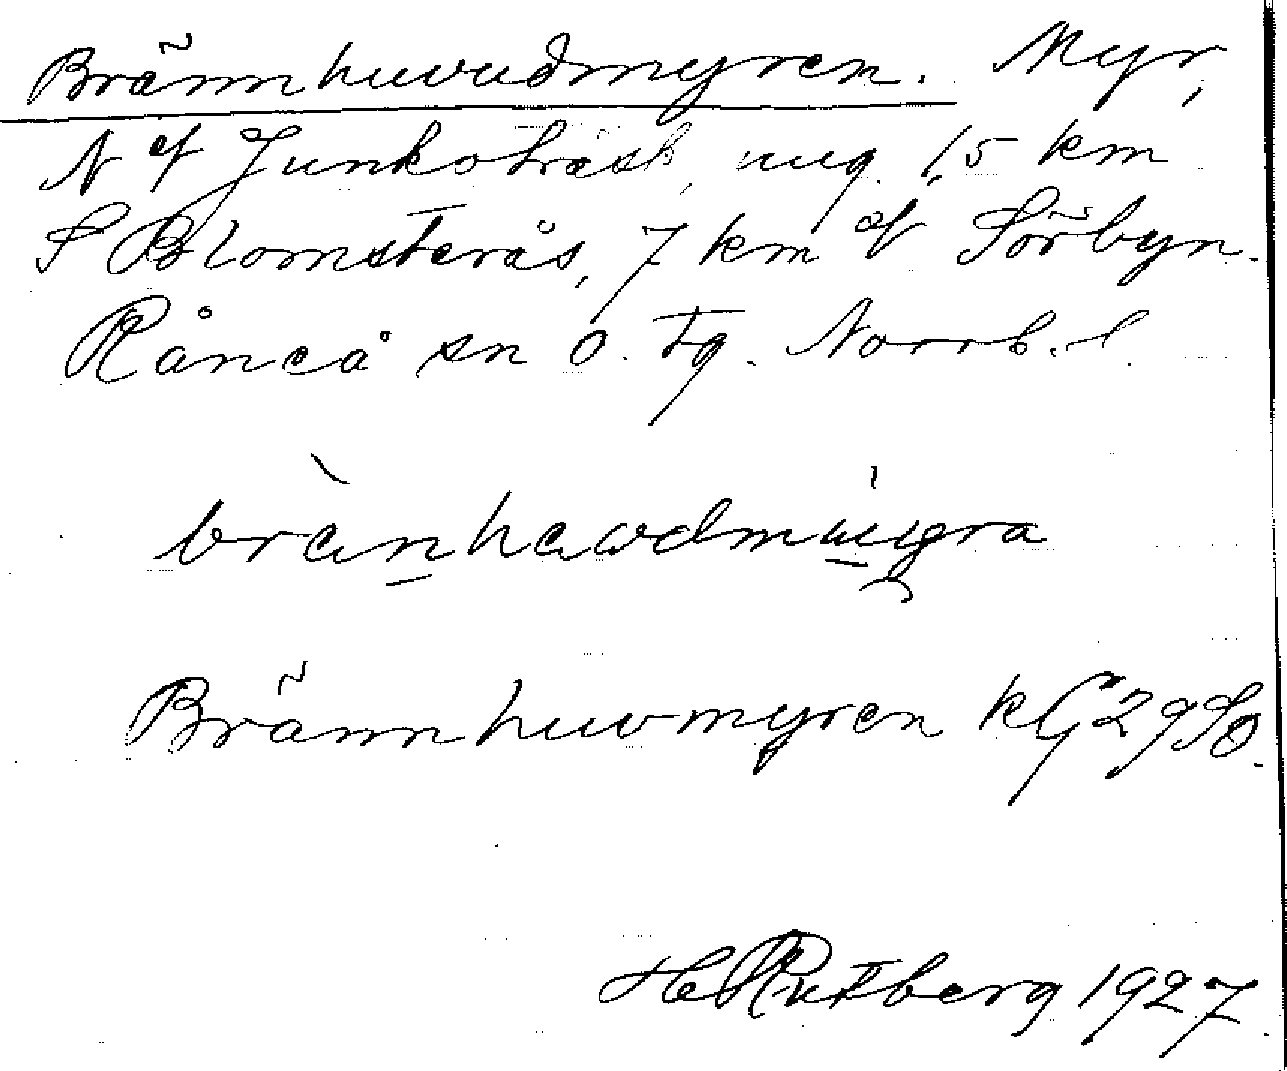 Brännhuvudmyren. Myr,
N of Junkoträsk, ung. 1,5 km
S Blomsterås, 7 km of Sörbyn.
Råneå sn Ö. Tg. Norrb. l.
Brännhuvmyren kG 29 SO.
H Rutberg 1927